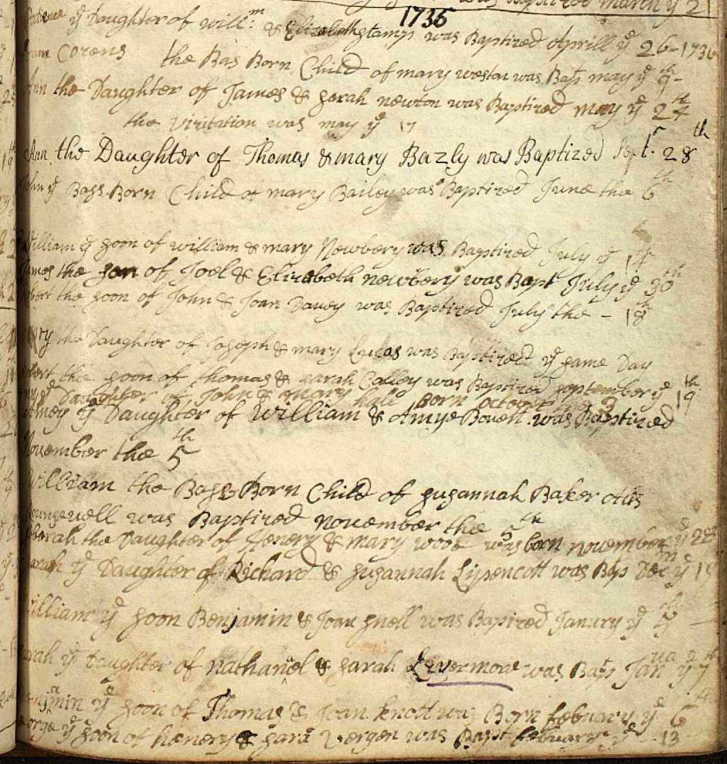 was Baptized march ye 2
1736
ye Daughter of Willm: & Elizabeth Stamp was Baptized Aprill ye 26-1736
Corens the Bas Born Child of mary weston was Bap may ye 9th -
Ann the Daughter of James & sarah newton was Baptized may ye 24th
the Visitation was may ye 17
Ann the Daughter of Thomas & mary Bazly was Baptized Sept. 28th
John ye Bass Born Child of mary Bailey was Baptized June the 6th
William ye soon of william & mary Newbery was Baptized July ye 14
James the son of Joel & Elizabeth newbery was Bapt July ye 30th
the soon of John & Joan Davey was Baptized July the - 18th
the Daughter of Joseph & mary Lucas was Baptized ye same Day
the soon of thomas & sarah Colley was Baptized september ye 19th
ye Daughter of John & mary hall Born october 3
ye Daughter of William & Amye Boven was Baptized
November the 5th
William the Bass Born Child of susannah Baker otis
was Baptized november the 5th
sarah the Daughter of Henery & mary wood was born november ye 28
sarah ye Daughter of Richard & susannah Lipencott was Bap Decm ye 19
William ye soon Benjamin & Joan snell was Baptized January ye
sarah ye Daughter of nathaniel & sarah Levermoar was Bap Jan ye 7
ye soon of Thomas & Joan knott was Born february ye 6
George ye soon of henery & sara Vergen was Bapt february ye 13